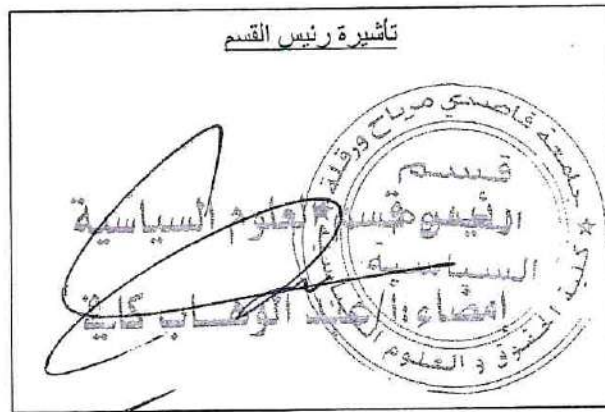 تأشيرة رئيس القسم
جامعة قاصدي مرباح ورقلة
كلية الحقوق و العلوم السياسية
قسم
العلوم
السياسية
رئيس قسم العلوم السياسية
إمضاء: أ/ عبد الوهاب كافي